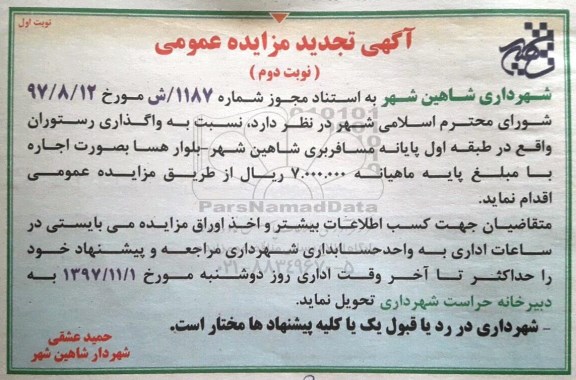 نوبت اول
آگهی تجدید مزایده عمومی
( نوبت دوم )
شهرداری شاهین شهر به استناد مجوز شماره ۱۱۸۷/ش مورخ ۹۷/۸/۱۲
شورای محترم اسلامی شهر در نظر دارد، نسبت به واگذاری رستوران
واقع در طبقه اول پایانه مسافربری شاهین شهر-بلوار هسا بصورت اجاره
با مبلغ پایه ماهیانه ۷.۰۰۰.۰۰۰ ریال از طریق مزایده عمومی
اقدام نماید.
ParsNamadData
متقاضیان جهت کسب اطلاعات بیشتر و اخذ اوراق مزایده می بایستی در
ساعات اداری به واحدحسابداری شهرداری مراجعه و پیشنهاد خود
را حداکثر تا آخر وقت اداری روز دوشنبه مورخ ۱۳۹۷/۱۱/۱ به
دبیرخانه حراست شهرداری تحویل نماید.
- شهرداری در رد یا قبول یک یا کلیه پیشنهاد ها مختار است.
حمید عشقی
شهردار شاهین شهر